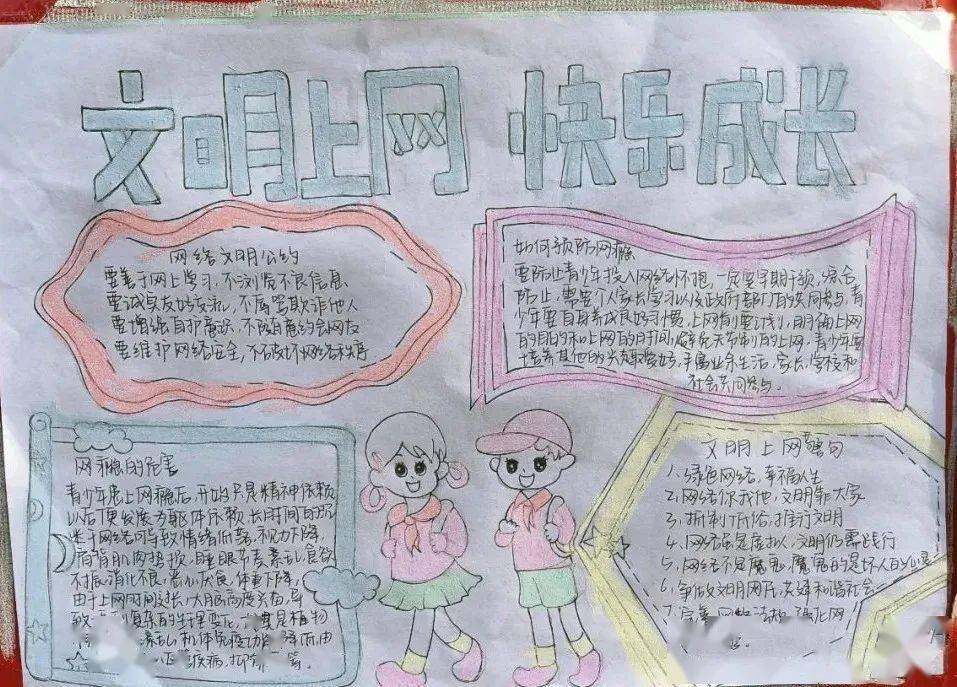 文明上网 快乐成长
网络文明公约
要善于网上学习,不浏览不良信息
要诚实友好交流,不辱骂欺诈他人
要增强自护意识,不随意约会网友
要维护网络安全,不破坏网络秩序
如何预防网瘾
要防止青少年投入网络怀抱,一定要早期干预,综合
防止,需要个人家长学习以及政府部门的共同参与,青
少年要自身养成良好习惯,上网有要计划,明确上网
的目的和上网的时间,避免无节制的上网,青少年要
培养其他的兴趣爱好,丰富业余生活,家长,学校和
社会共同参与。
网瘾的危害
青少年患上网瘾后,开始只是精神依赖
以后便发展为躯体依赖,长时间的沉
迷于网络可导致情绪低落,视力下降,
肩背肌肉劳损,睡眠节奏紊乱,食欲
不振,消化不良,体重下降,
由于上网时间过长,大脑高度兴奋,导
致 的生理变化, 植物
紊乱,机体免疫功能 降而由
疾病,抑郁 等。
文明上网警句
1,绿色网络,幸福人生
2,网络你我他,文明靠大家
3,抵制低俗,推行文明
4,网络虽是虚拟,文明仍需践行
5,网络不是魔鬼,魔鬼的是坏人的心灵
6,争做文明网民,共建和谐社会
7, 网 活动,强化网